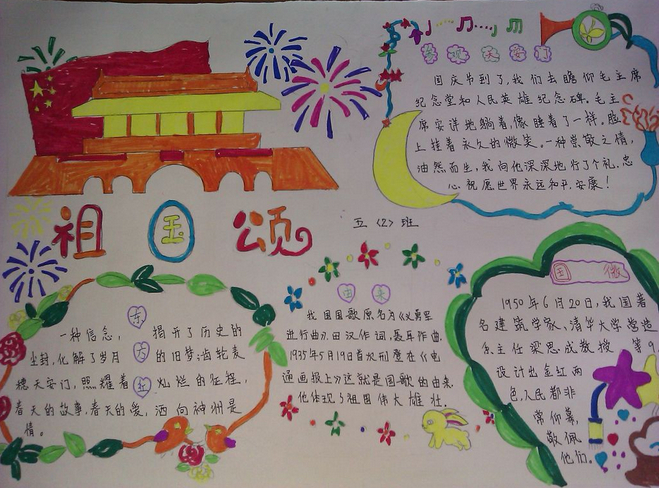 国庆节到了,我们去瞻仰毛主席
纪念堂和人民英雄纪念碑。毛主
席安详地躺着,像睡着了一样。脸
上挂着永久的微笑。一种崇敬之情,
油然而生,我向他深深地行了个礼。忠
心祝愿世界永远和平,安康!
祖国颂
五〈2〉班
东方红
一种信念,揭开了历史的
尘封,化解了岁月的旧梦,齿轮麦
穗天安门,照耀着灿烂的征程,
春天的故事,春天的爱,洒向神州是
情。
由来
我国国歌原名为《义勇军
进行曲》,田汉作词,聂耳作曲,
1935年5月19日首次刊麐在《电
通画报上》这就是国歌的由来,
他体现了祖国伟大雄壮,
国徽
1950年6月20日,我国著
名建筑学家、清华大学营造
系主任梁思成教授等9
设计出金红两
色,人民都非
常仰慕,
敬佩
他们。